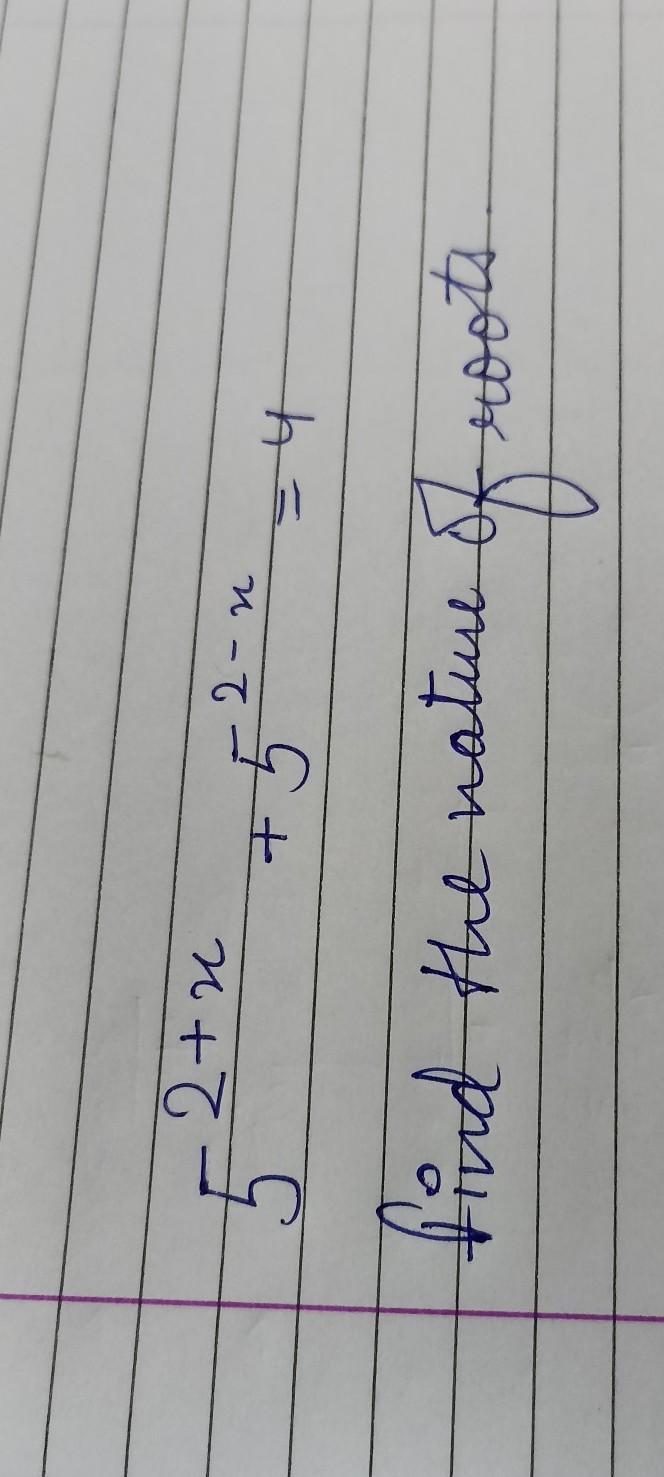 5^{2+x} + 5^{2-x} = 4
find the nature of roots.